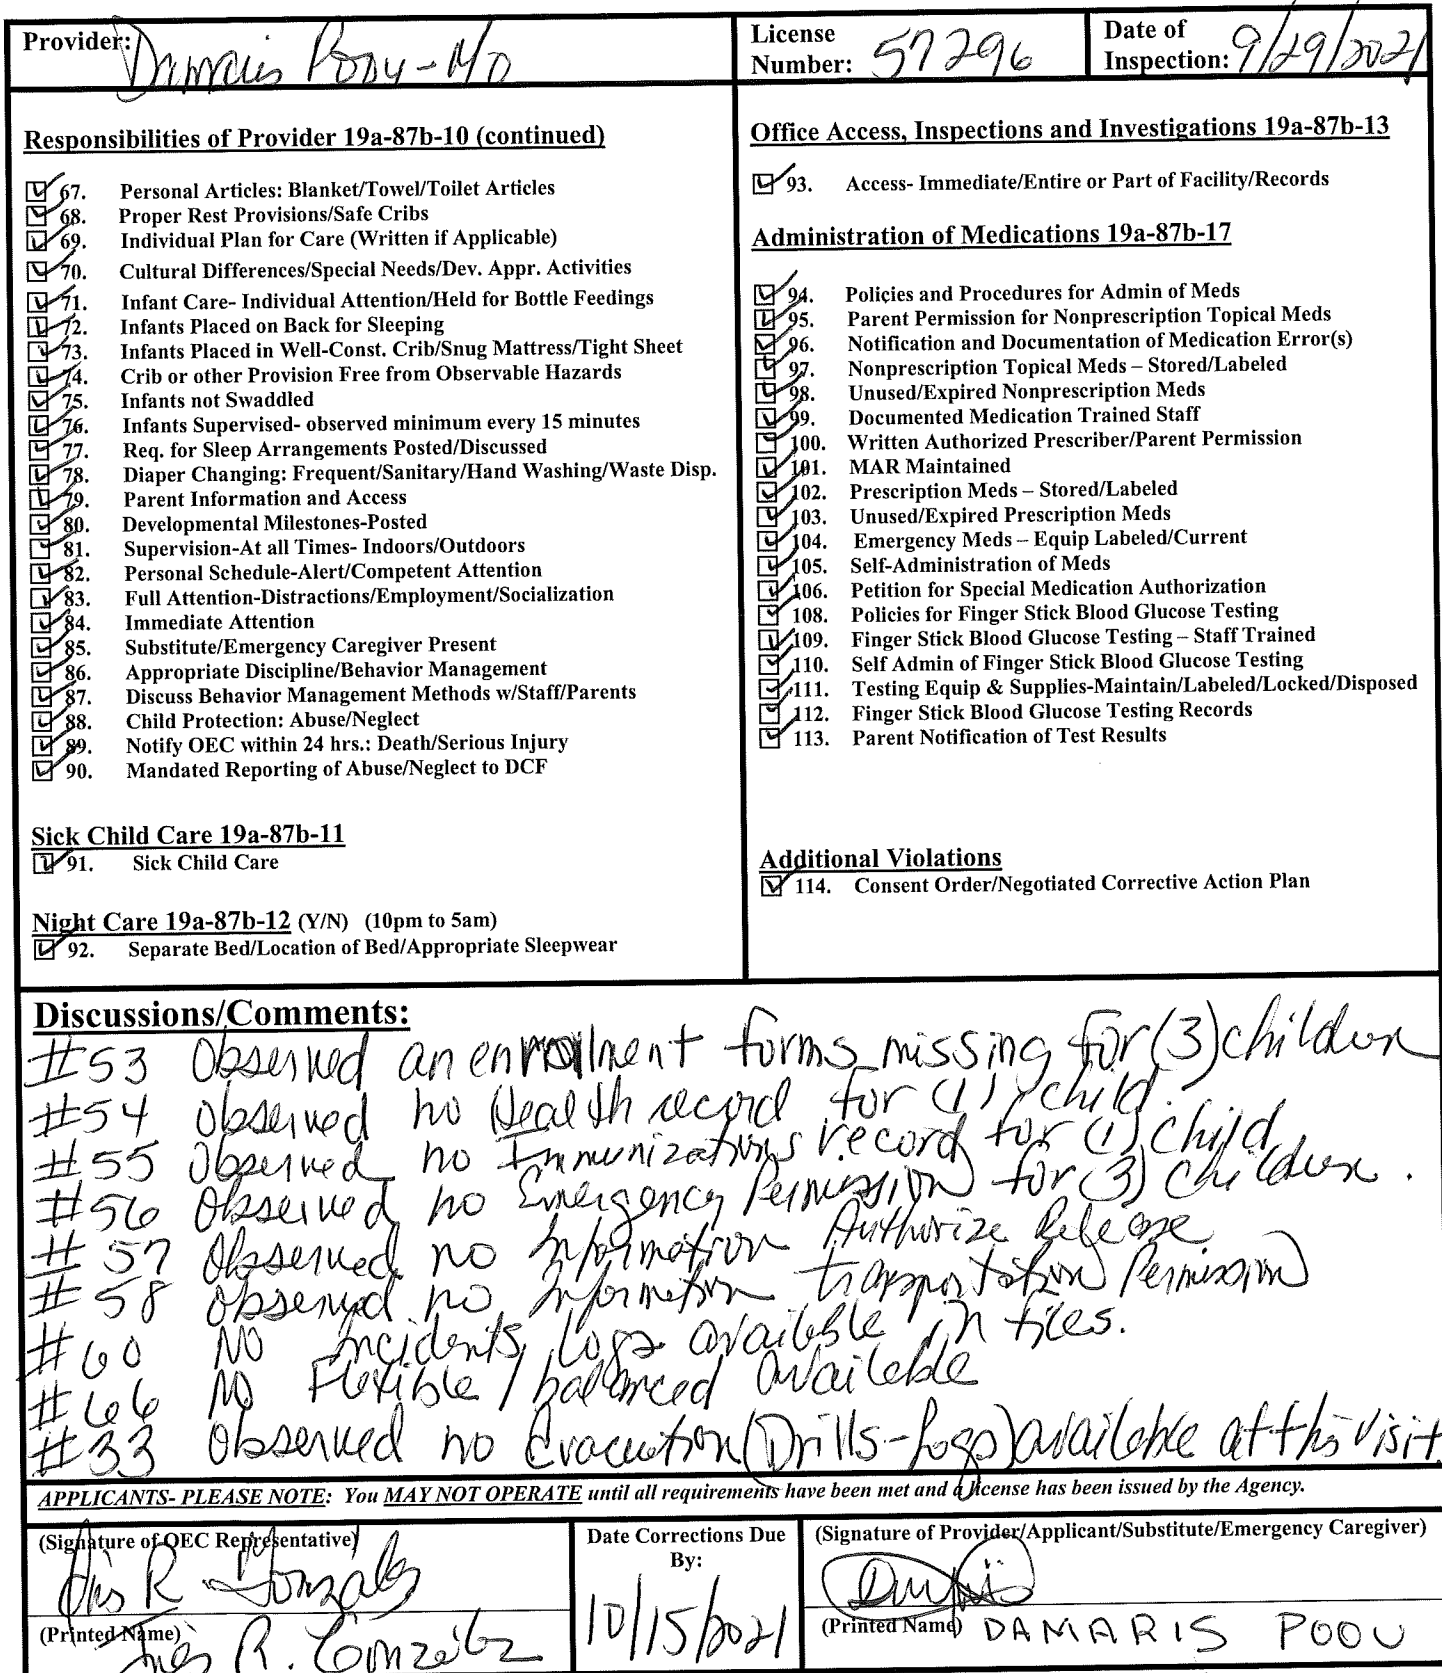 Provider: Damaris Poou-Mo
License Number: 57296
Date of Inspection: 9/29/2021
Responsibilities of Provider 19a-87b-10 (continued)
67. Personal Articles: Blanket/Towel/Toilet Articles
68. Proper Rest Provisions/Safe Cribs
69. Individual Plan for Care (Written if Applicable)
70. Cultural Differences/Special Needs/Dev. Appr. Activities
71. Infant Care- Individual Attention/Held for Bottle Feedings
72. Infants Placed on Back for Sleeping
73. Infants Placed in Well-Const. Crib/Snug Mattress/Tight Sheet
74. Crib or other Provision Free from Observable Hazards
75. Infants not Swaddled
76. Infants Supervised- observed minimum every 15 minutes
77. Req. for Sleep Arrangements Posted/Discussed
78. Diaper Changing: Frequent/Sanitary/Hand Washing/Waste Disp.
79. Parent Information and Access
80. Developmental Milestones-Posted
81. Supervision-At all Times- Indoors/Outdoors
82. Personal Schedule-Alert/Competent Attention
83. Full Attention-Distractions/Employment/Socialization
84. Immediate Attention
85. Substitute/Emergency Caregiver Present
86. Appropriate Discipline/Behavior Management
87. Discuss Behavior Management Methods w/Staff/Parents
88. Child Protection: Abuse/Neglect
89. Notify OEC within 24 hrs.: Death/Serious Injury
90. Mandated Reporting of Abuse/Neglect to DCF
Sick Child Care 19a-87b-11
91. Sick Child Care
Night Care 19a-87b-12 (Y/N) (10pm to 5am)
92. Separate Bed/Location of Bed/Appropriate Sleepwear
Office Access, Inspections and Investigations 19a-87b-13
93. Access- Immediate/Entire or Part of Facility/Records
Administration of Medications 19a-87b-17
94. Policies and Procedures for Admin of Meds
95. Parent Permission for Nonprescription Topical Meds
96. Notification and Documentation of Medication Error(s)
97. Nonprescription Topical Meds – Stored/Labeled
98. Unused/Expired Nonprescription Meds
99. Documented Medication Trained Staff
100. Written Authorized Prescriber/Parent Permission
101. MAR Maintained
102. Prescription Meds – Stored/Labeled
103. Unused/Expired Prescription Meds
104. Emergency Meds – Equip Labeled/Current
105. Self-Administration of Meds
106. Petition for Special Medication Authorization
108. Policies for Finger Stick Blood Glucose Testing
109. Finger Stick Blood Glucose Testing – Staff Trained
110. Self Admin of Finger Stick Blood Glucose Testing
111. Testing Equip & Supplies-Maintain/Labeled/Locked/Disposed
112. Finger Stick Blood Glucose Testing Records
113. Parent Notification of Test Results
Additional Violations
114. Consent Order/Negotiated Corrective Action Plan
Discussions/Comments:
#53 Observed an enrollment forms missing for (3) children
#54 Observed no Health record for (1) child.
#55 Observed no Immunizations record for (1) child
#56 Observed no Emergency Permission for (3) children.
#57 Observed no Information Authorize Release
#58 Observed no Information transportation Permission
#60 No incidents Logs available in files.
#66 No Flexible / balanced available
#33 Observed no Evacuation (Drills-Logs) available at this visit.
APPLICANTS- PLEASE NOTE: You MAY NOT OPERATE until all requirements have been met and a license has been issued by the Agency.
(Signature of OEC Representative)
Ines R Gonzalez
(Printed Name) Ines R. Gonzalez
Date Corrections Due By:
10/15/2021
(Signature of Provider/Applicant/Substitute/Emergency Caregiver)
(Printed Name) DAMARIS POOU